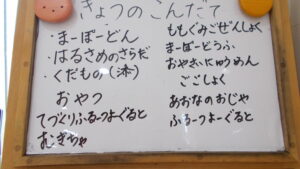 きょうのこんだて
・まーぼーどん
・はるさめのさらだ
・くだもの
おやつ
てづくりふるーつよーぐると
むぎちゃ
ももぐみごぜんしょく
まーぼーどうふ
おやさいにゅうめん
ごごしょく
あおなのおじや
ふるーつよーぐると